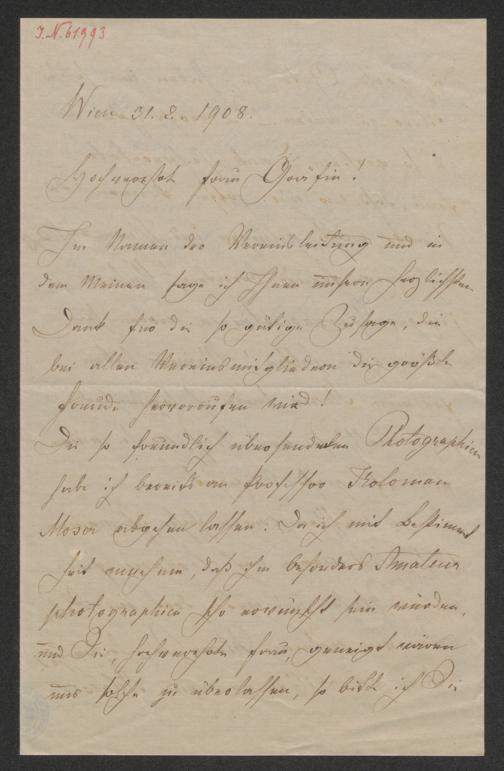 J.N. 61993
Wien 31. 8. 1908.
Hochverehrte Frau Gräfin!
Im Namen der Vereinsleitung und in
dem Meinen sage ich Ihnen unsern herzlichsten
Dank für die so gütige Zusage, die
bei allen Vereinsmitgliedern die größte
Freude hervorrufen wird!
Die so freundlich übersendeten Photographien
habe ich bereits an Professor Koloman
Moser abgehen lassen. Da ich mit Bestimmt
heit annehme, daß ihm besonders Amateur
photographien sehr erwünscht sein würden,
und Sie hochverehrte Frau, geneigt wären
uns solche zu überlassen, so bitte ich Sie